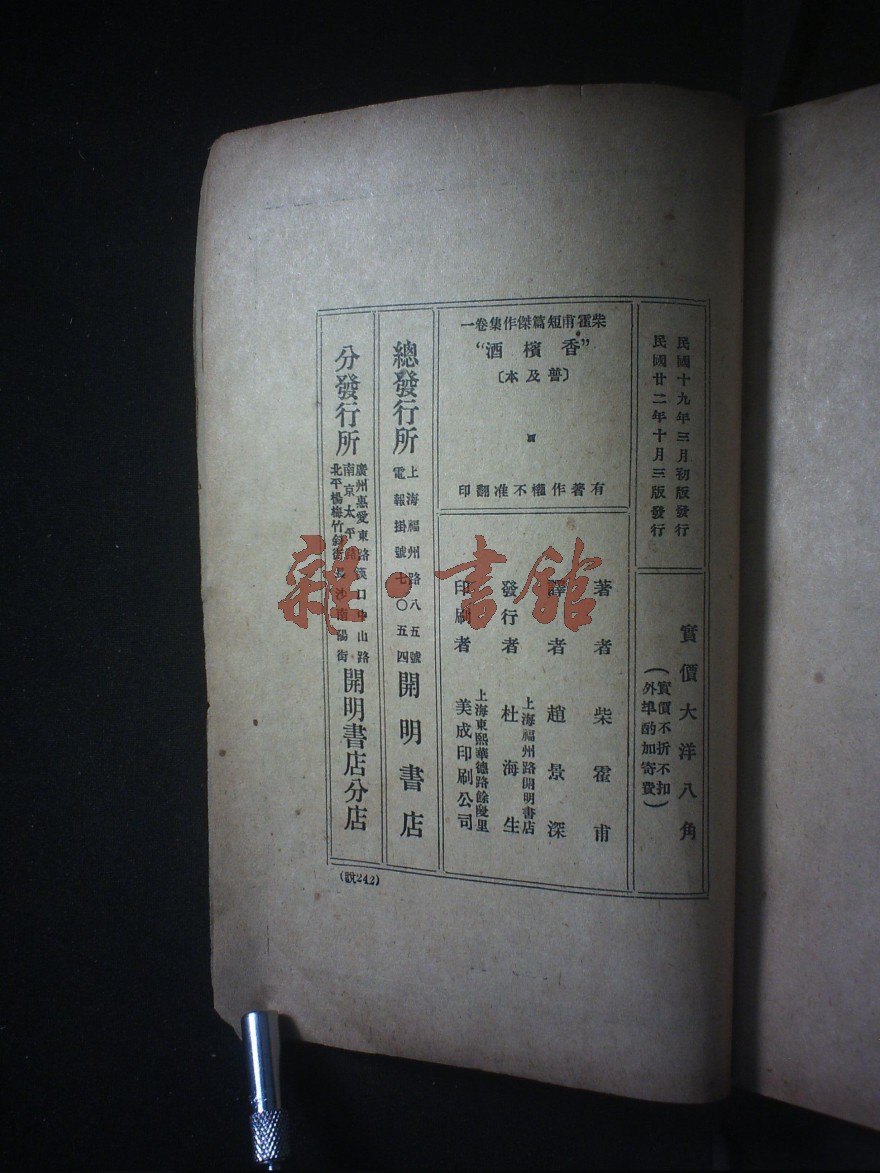 民國十九年三月初版發行
民國廿二年十月三版發行
實價大洋八角
(實價不折不扣
外埠酌加寄費)
柴霍甫短篇傑作集卷一
“香檳酒”
〔普及本〕
有著作權不准翻印
著者 柴霍甫
譯者 趙景深
發行者 上海福州路開明書店
杜海生
印刷者 上海東熙華德路餘慶里
美成印刷公司
總發行所 上海福州路八五號
電報掛號七〇五四 開明書店
分發行所 廣州惠愛東路 漢口中山路
南京太平路
北平楊梅竹斜街 長沙南陽街 開明書店分店
(說242)
雜·書館